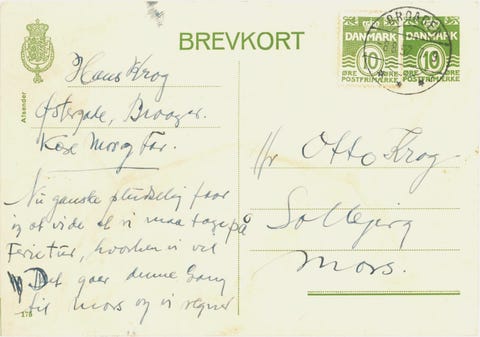 BREVKORT
DANMARK DANMARK
10 10
ØRE ØRE
POSTFRIMÆRKE POSTFRIMÆRKE
BROAGER
Afsender
Hans Krog
Østergade, Broager.
Kære Mor og Far.
Nu ganske pludselig faar
vi at vide at vi maa tage på
Ferietur, hvorhen vi vil
Det gaar denne Gang
til Mors og vi regner
178
Hr Otto Krog
Solbjerg
Mors.